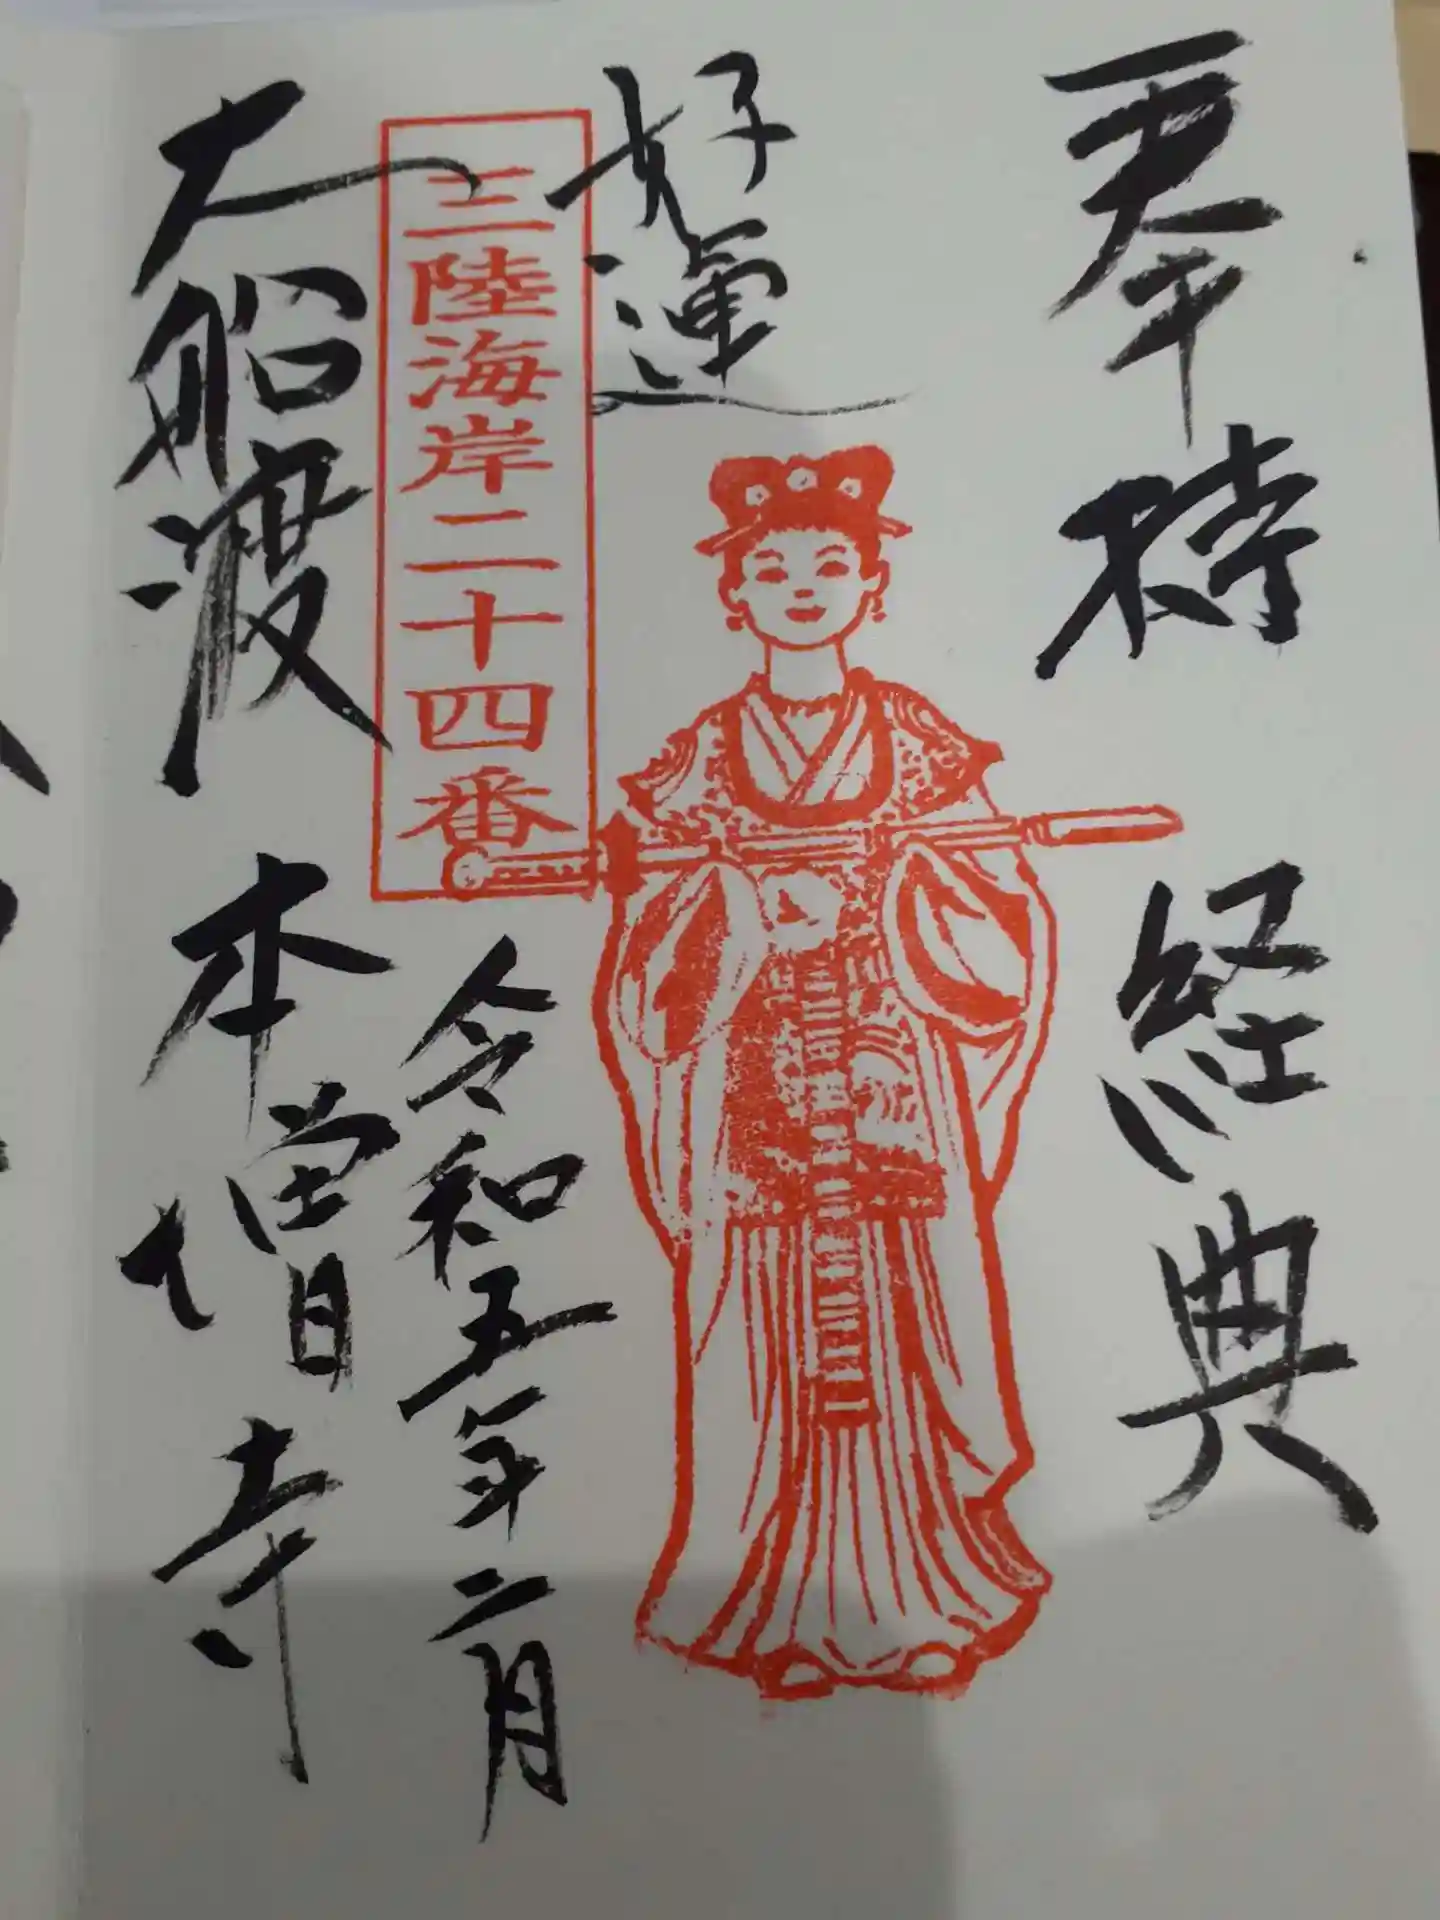 奉持 経典
好運
三陸海岸二十四番
令和五年二月
大船渡 本増寺